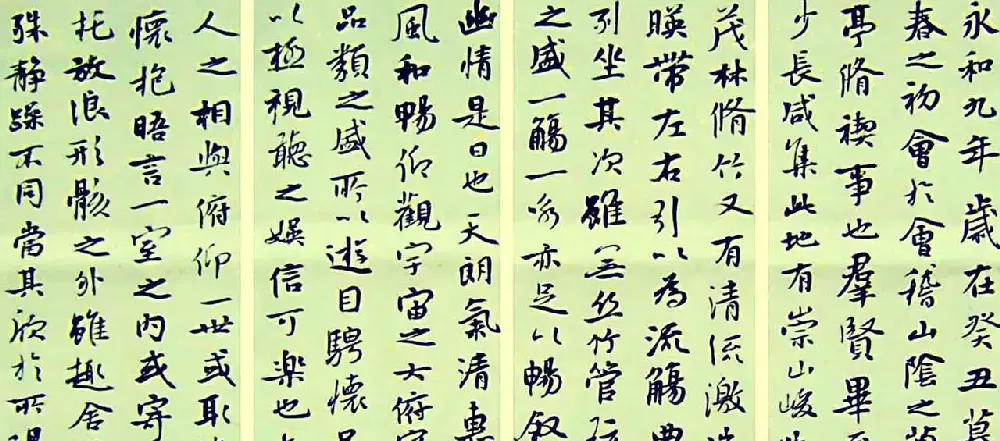 永和九年歲在癸丑暮
春之初會於會稽山陰之蘭
亭脩禊事也羣賢畢至
少長咸集此地有崇山峻
茂林脩竹又有清流激
暎帶左右引以為流觴曲
列坐其次雖無絲竹管弦
之盛一觴一詠亦足以暢敘
幽情是日也天朗氣清惠
風和暢仰觀宇宙之大俯察
品類之盛所以遊目騁懷足
以極視聽之娛信可樂也
人之相與俯仰一世或取
懷抱晤言一室之內或寄
托放浪形骸之外雖趣舍
殊靜躁不同當其欣於所